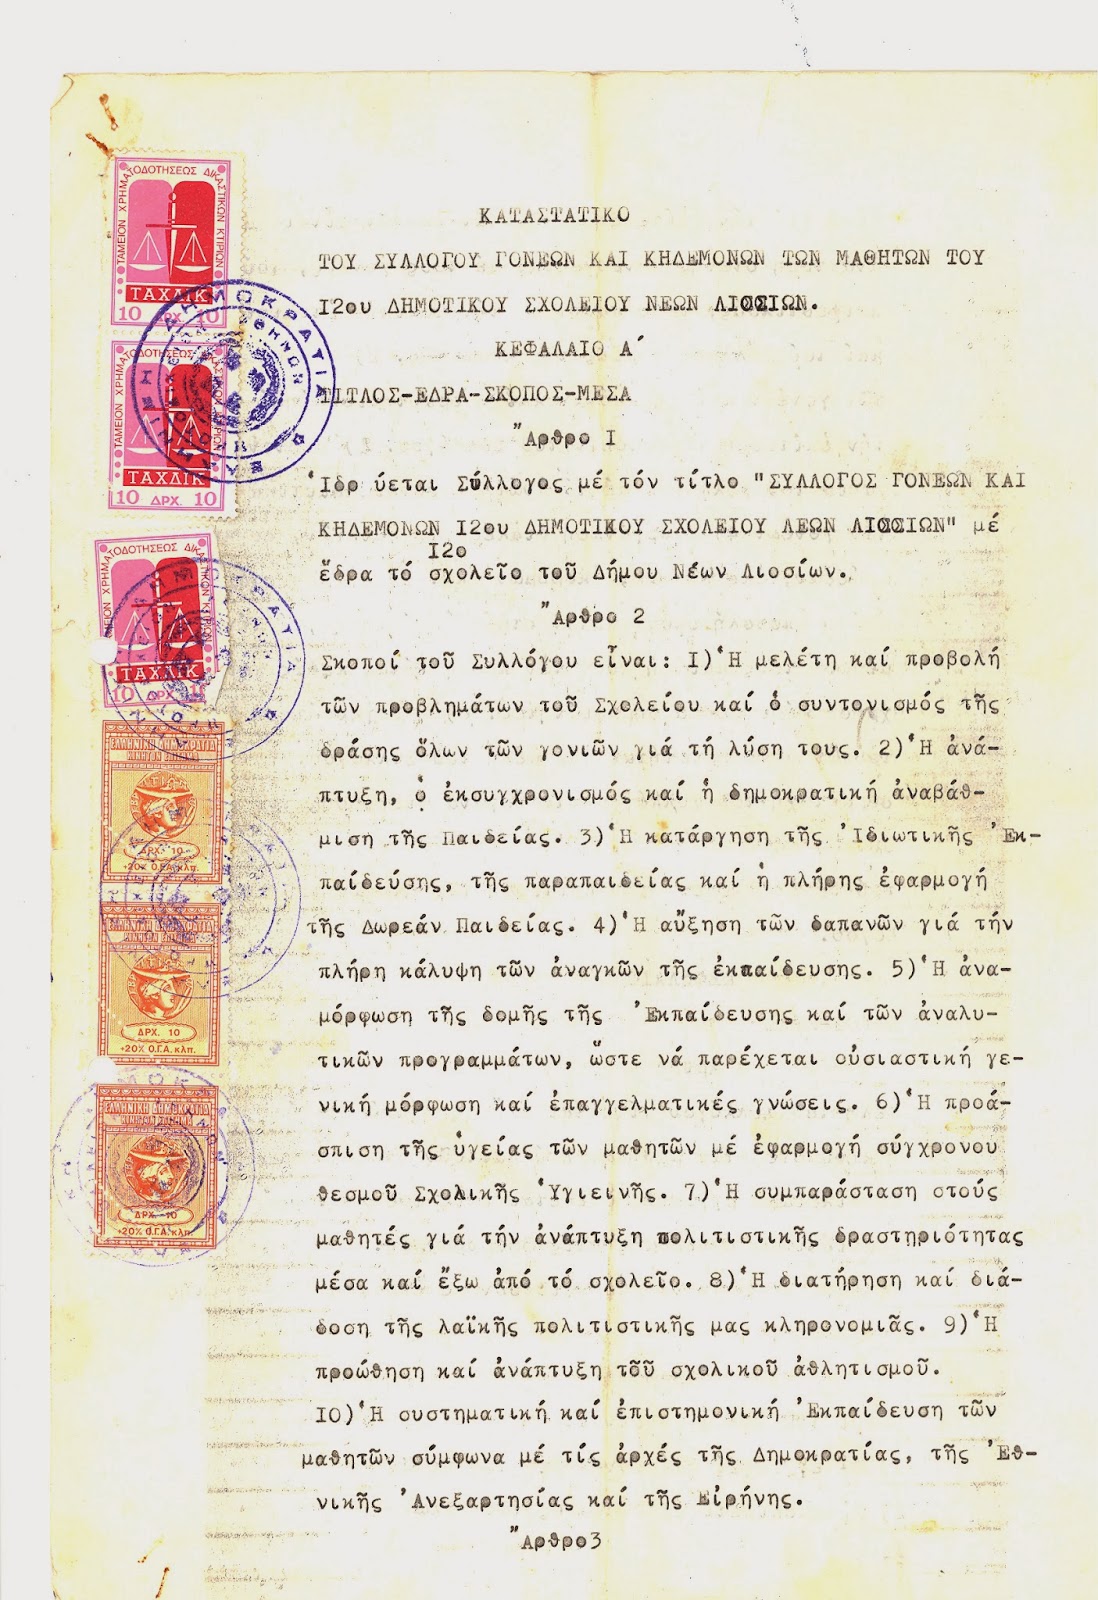 ΚΑΤΑΣΤΑΤΙΚΟ
ΤΟΥ ΣΥΛΛΟΓΟΥ ΓΟΝΕΩΝ ΚΑΙ ΚΗΔΕΜΟΝΩΝ ΤΩΝ ΜΑΘΗΤΩΝ ΤΟΥ
I2ου ΔΗΜΟΤΙΚΟΥ ΣΧΟΛΕΙΟΥ ΝΕΩΝ ΛΙΟΣΙΩΝ.
ΚΕΦΑΛΑΙΟ Α΄
ΤΙΤΛΟΣ-ΕΔΡΑ-ΣΚΟΠΟΣ-ΜΕΣΑ
Ἄρθρο I
Ἱδρ ύεται Σύλλογος μέ τόν τίτλο "ΣΥΛΛΟΓΟΣ ΓΟΝΕΩΝ ΚΑΙ
ΚΗΔΕΜΟΝΩΝ I2ου ΔΗΜΟΤΙΚΟΥ ΣΧΟΛΕΙΟΥ ΛΕΩΝ ΛΙΟΣΙΩΝ" μέ
I2ο
ἕδρα τό σχολεῖο τοῦ Δήμου Νέων Λιοσίων.
Ἄρθρο 2
Σκοποί τοῦ Συλλόγου εἶναι: I) Ἡ μελέτη καί προβολή
τῶν προβλημάτων τοῦ Σχολείου καί ὁ συντονισμός τῆς
δράσης ὅλων τῶν γονιῶν γιά τή λύση τους. 2) Ἡ ἀνά-
πτυξη, ὁ ἐκσυγχρονισμός καί ἡ δημοκρατική ἀναβάθ-
μιση τῆς Παιδείας. 3) Ἡ κατάργηση τῆς Ἰδιωτικῆς Ἐκ-
παίδεύσης, τῆς παραπαιδείας καί ἡ πλήρης ἐφαρμογή
τῆς Δωρεάν Παιδείας. 4) Ἡ αὔξηση τῶν δαπανῶν γιά τήν
πλήρη κάλυψη τῶν ἀναγκῶν τῆς ἐκπαίδευσης. 5) Ἡ ἀνα-
μόρφωση τῆς δομῆς τῆς Ἐκπαίδευσης καί τῶν ἀναλυ-
τικῶν προγραμμάτων, ὥστε νά παρέχεται οὐσιαστική γε-
νική μόρφωση καί ἐπαγγελματικές γνώσεις. 6) Ἡ προά-
σπιση τῆς ὑγείας τῶν μαθητῶν μέ ἐφαρμογή σύγχρονου
θεσμοῦ Σχολικῆς Ὑγιεινῆς. 7) Ἡ συμπαράσταση στούς
μαθητές γιά τήν ἀνάπτυξη πολιτιστικῆς δραστηριότητας
μέσα καί ἔξω ἀπό τό σχολεῖο. 8) Ἡ διατήρηση καί διά-
δοση τῆς λαϊκῆς πολιτιστικῆς μας κληρονομιᾶς. 9) Ἡ
προώθηση καί ἀνάπτυξη τοῦ σχολικοῦ ἀθλητισμοῦ.
IO) Ἡ συστηματική καί ἐπιστημονική Ἐκπαίδευση τῶν
μαθητῶν σύμφωνα μέ τίς ἀρχές τῆς Δημοκρατίας, τῆς Ἐθ-
νικῆς Ἀνεξαρτησίας καί τῆς Εἰρήνης.
Ἄρθρο3
ΤΑΜΕΙΟΝ ΧΡΗΜΑΤΟΔΟΤΗΣΕΩΣ ΔΙΚΑΣΤΙΚΩΝ ΚΤΙΡΙΩΝ
ΤΑΧΔΙΚ
10 ΔΡΧ. 10
ΤΑΜΕΙΟΝ ΧΡΗΜΑΤΟΔΟΤΗΣΕΩΣ
ΤΑΧΔΙΚ
10 ΔΡΧ. 10
ΤΑΜΕΙΟΝ ΧΡΗΜΑΤΟΔΟΤΗΣΕΩΣ ΔΙΚΑΣΤΙΚΩΝ ΚΤΙΡΙΩΝ
ΤΑΧΔΙΚ
10 ΔΡΧ. 10
ΕΛΛΗΝΙΚΗ ΔΗΜΟΚΡΑΤΙΑ
ΔΡΧ. 10
+20% Ο.Γ.Α. κλπ.
ΕΛΛΗΝΙΚΗ ΔΗΜΟΚΡΑΤΙΑ
ΔΡΧ. 10
+20% Ο.Γ.Α. κλπ.
ΕΛΛΗΝΙΚΗ ΔΗΜΟΚΡΑΤΙΑ
ΔΡΧ. 10
+20% Ο.Γ.Α. κλπ.
ΔΗΜΟΚΡΑΤΙΑ
ΑΘΗΝΩΝ